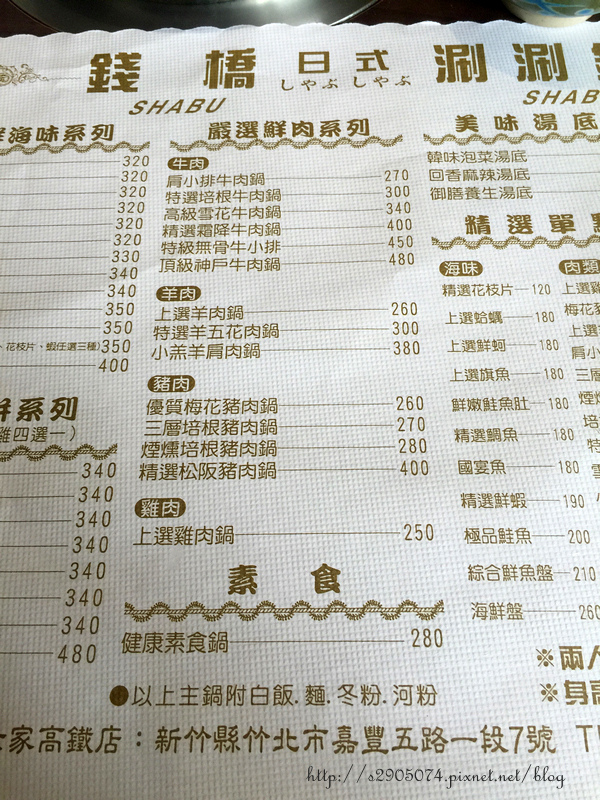 錢橋 日式 涮涮
しゃぶしゃぶ
SHABU
SHAB
海味系列
320
320
320
320
320
330
340
340
350
350
、花枝片、蝦任選三種)350
400
系列
雞四選一)
340
340
340
340
340
340
340
480
嚴選鮮肉系列
牛肉
肩小排牛肉鍋 270
特選培根牛肉鍋 300
高級雪花牛肉鍋 340
精選霜降牛肉鍋 400
特級無骨牛小排 450
頂級神戶牛肉鍋 480
羊肉
上選羊肉鍋 260
特選羊五花肉鍋 300
小羔羊肩肉鍋 380
豬肉
優質梅花豬肉鍋 260
三層培根豬肉鍋 270
煙燻培根豬肉鍋 280
精選松阪豬肉鍋 400
雞肉
上選雞肉鍋 250
素食
健康素食鍋 280
美味湯底
韓味泡菜湯底
回香麻辣湯底
御膳養生湯底
精選單點
海味
精選花枝片 120
上選蛤蠣 180
上選鮮蚵 180
上選旗魚 180
鮮嫩鮭魚肚 180
精選鯛魚 180
國宴魚 180
精選鮮蝦 190
極品鮭魚 200
綜合鮮魚盤 210
海鮮盤 260
肉類
上選
梅花豬
上選
肩小
三層
煙燻
培
特
●以上主鍋附白飯.麵.冬粉.河粉
※兩人
※身高
家高鐵店：新竹縣竹北市嘉豐五路一段7號 T
http://s2905074.pixnet.net/blog